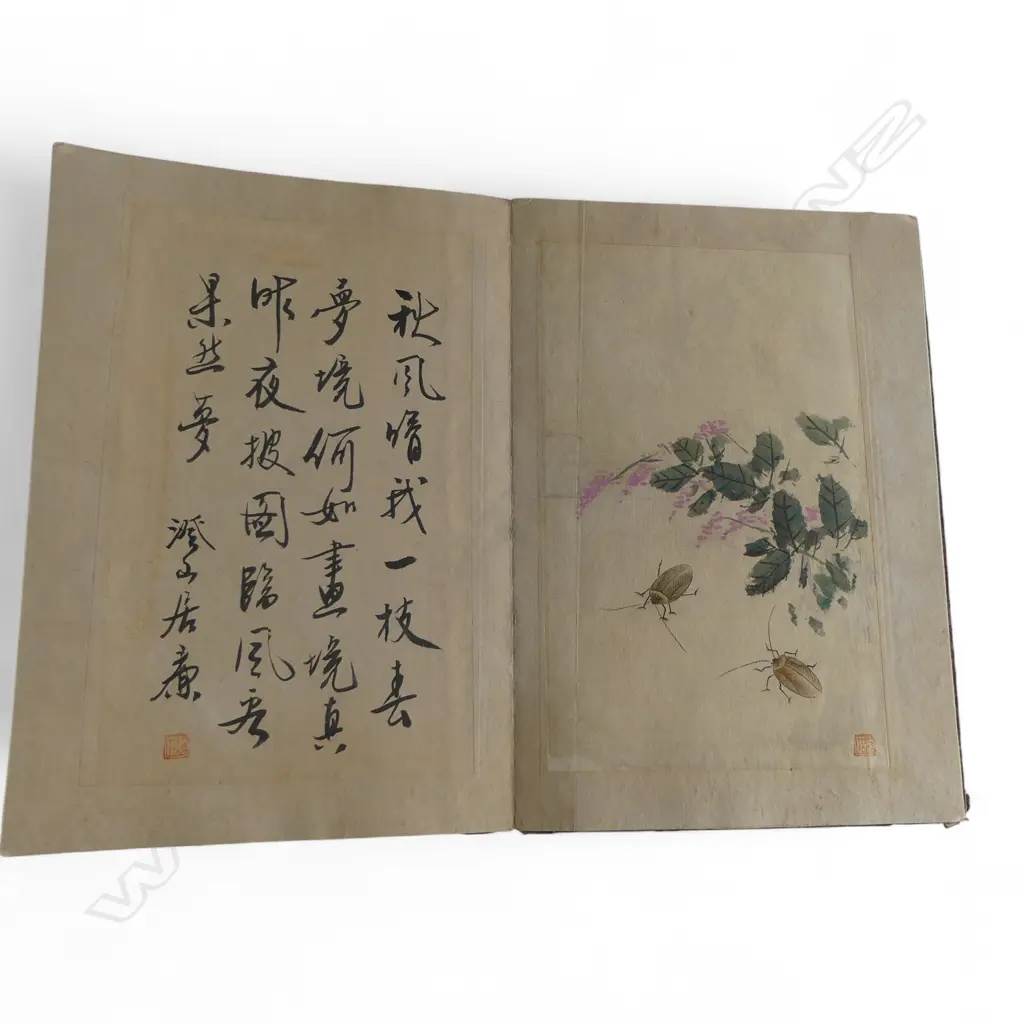 秋風我一枝春
夢境何如畫境真
昨夜披圖臨風看
果然夢
澄山居廉